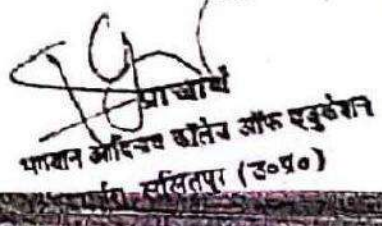 प्राचार्य
भगवान आदिनाथ कॉलेज ऑफ एजुकेशन
ललितपुर (उ०प्र०)